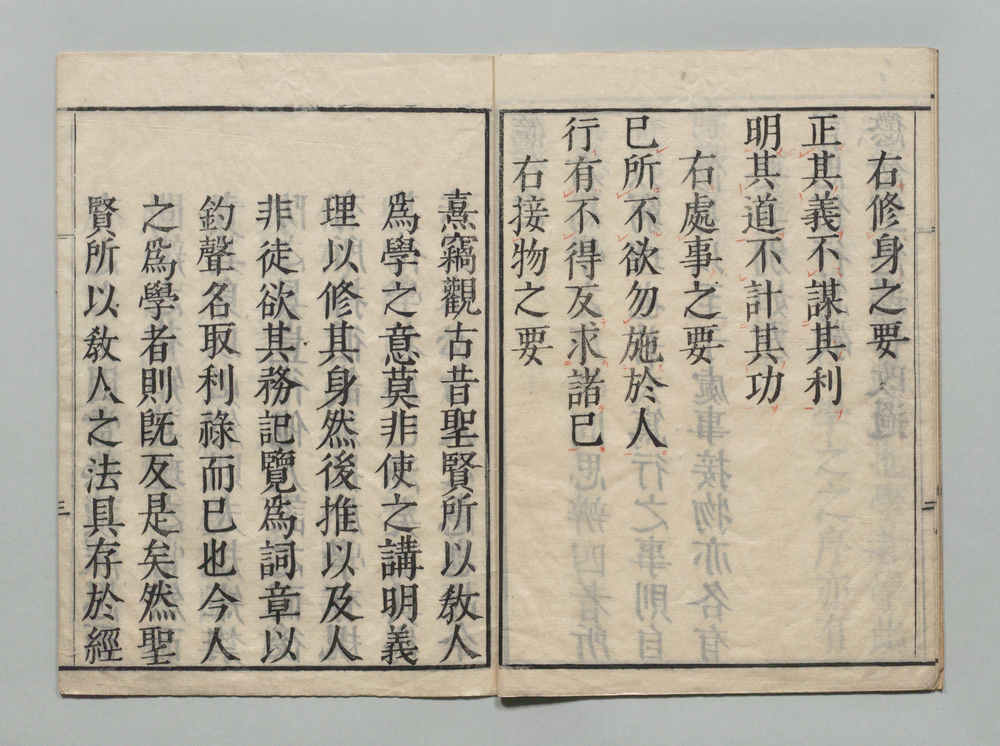 右修身之要
正其義不謀其利
明其道不計其功
右處事之要
已所不欲勿施於人
行有不得反求諸已
右接物之要
熹竊觀古昔聖賢所以敎人
爲學之意莫非使之講明義
理以修其身然後推以及人
非徒欲其務記覽爲詞章以
釣聲名取利祿而已也今人
之爲學者則既反是矣然聖
賢所以敎人之法具存於經
二
三